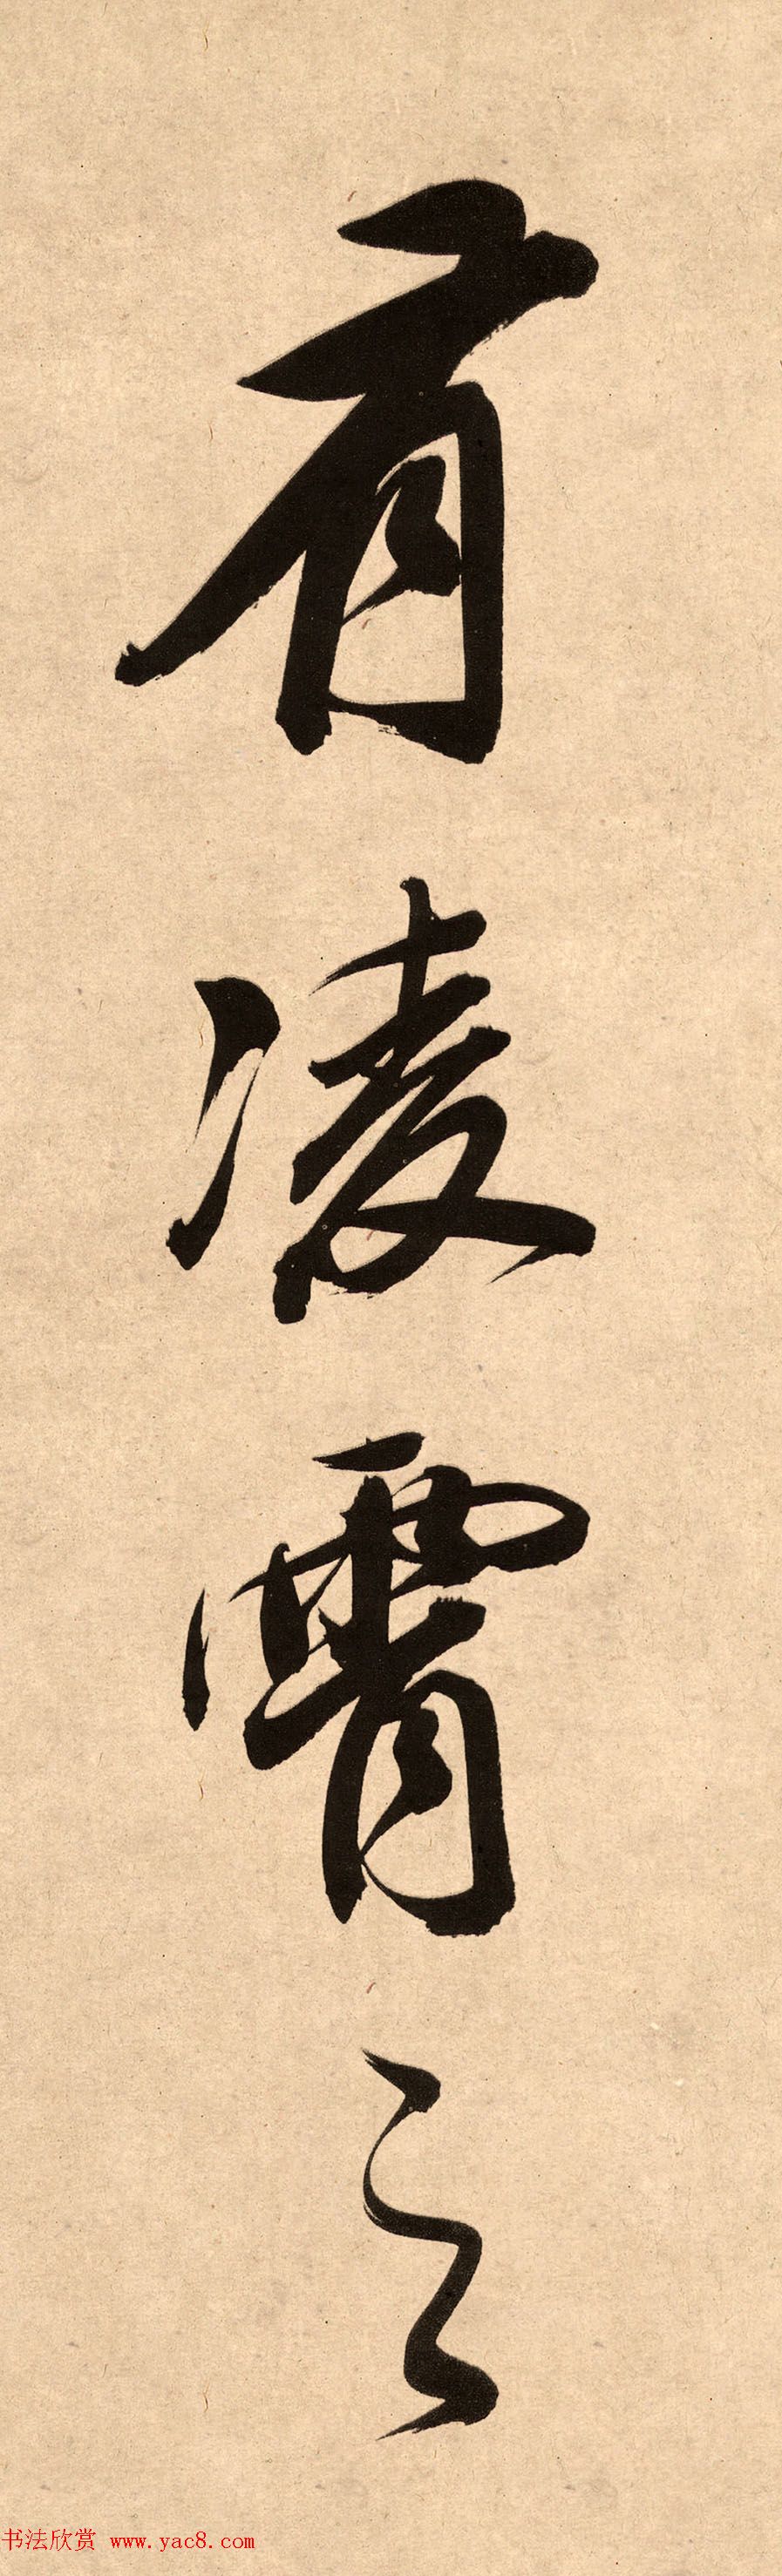 有凌霄之
书法欣赏 www.yac8.com